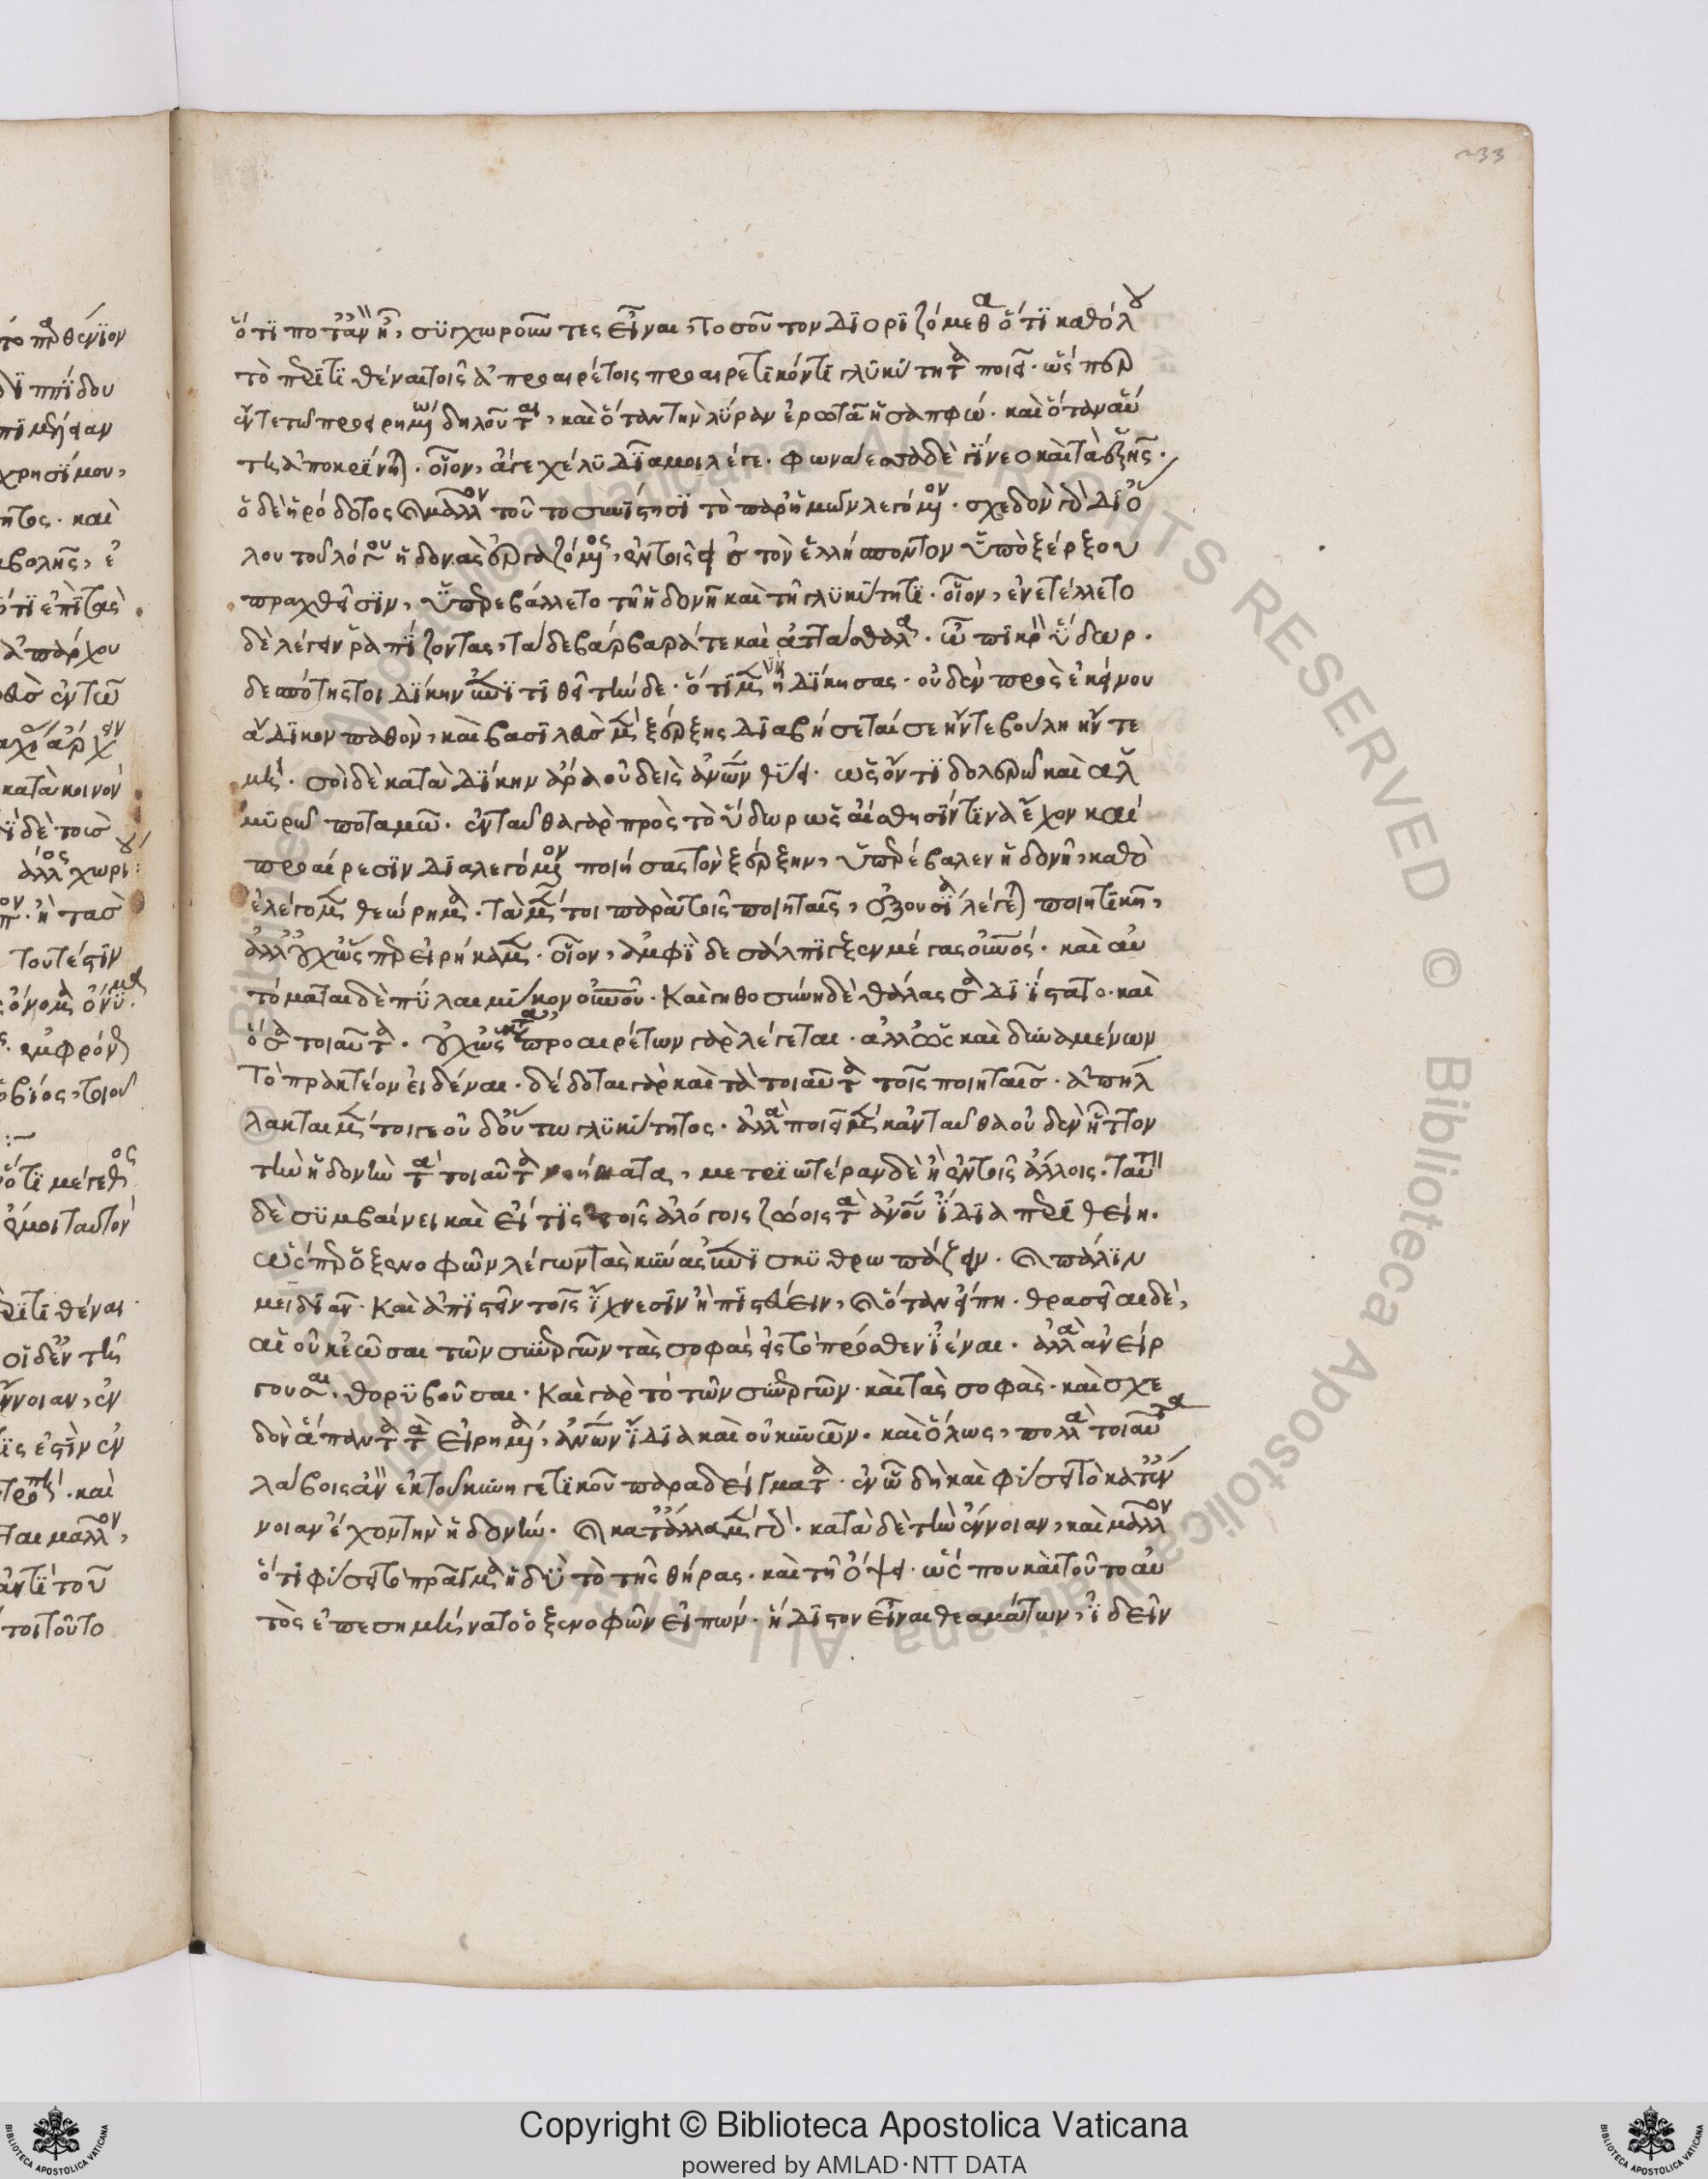 233
ὅτι ποτ' ἂν ᾖ, συγχωροῦντες εἶναι, τοσοῦτον διοριζόμεθα ὅτι καθόλου
τὸ περιτιθέναι τοῖς ἀπροαιρέτοις προαιρετικόν τι γλυκύτητα ποιεῖ. ὥσπερ
ἔν τε τῷ προειρημένῳ δηλοῦται, καὶ ὅταν τὴν λύραν ἐρωτᾷ ἡ σαπφώ. καὶ ὅταν αὐ
τὴ ἀποκρίνηται. οἷον, ἄγε χέλυ δῖά μοι λέγε. φωνάεσσα δὲ γίνεο καὶ τὰ ἑξῆς.
ὁ δὲ ἡρόδοτος καὶ μᾶλλον τοῦτο συνίστησι τὸ παρ' ἡμῶν λεγόμενον. σχεδὸν γὰρ δι' ὅ
λου τοῦ λόγου ἡδονὰς ἐργαζόμενος, ἐν τοῖς εἰς τὸν ἑλλήσποντον ὑπὸ ξέρξου
πραχθεῖσιν, ὑπερεβάλλετο τῇ ἡδονῇ καὶ τῇ γλυκύτητι. οἷον, ἐνετέλλετο
δὲ λέγειν ῥαπίζοντας, τάδε βάρβαρά τε καὶ ἀτάσθαλα. ὦ πικρὸν ὕδωρ.
δεσπότης τοι δίκην ἐπιτιθεῖ τήνδε. ὅτι μιν ἠδίκησας. οὐδὲν πρὸς ἐκείνου
ἄδικον παθὸν, καὶ βασιλεὺς μὲν ξέρξης διαβήσεταί σε ἤν τε βούλῃ ἤν τε
μή. σοὶ δὲ κατὰ δίκην ἄρα οὐδεὶς ἀνθρώπων θύει. ὡς ὄντι δολερῷ καὶ ἁλ
μυρῷ ποταμῷ. ἐνταῦθα γὰρ πρὸς τὸ ὕδωρ ὡς αἴσθησίν τινα ἔχον καὶ
προαίρεσιν διαλεγόμενον ποιήσας τὸν ξέρξην, ὑπερέβαλεν ἡδονῇ, καθὸ
ἐλέγομεν θεώρημα. τὰ μέντοι παρὰ τοῖς ποιηταῖς, ἐξουσίᾳ λέγεται ποιητικῇ,
ἀλλ' οὐχ ὡς προειρήκαμεν. οἷον, ἀμφὶ δὲ σάλπιγξεν μέγας οὐρανός. καὶ αὐ
τόμαται δὲ πύλαι μύκον οὐρανοῦ. καὶ γηθοσύνη δὲ θάλασσα διίστατο. καὶ
ὅσα τοιαῦτα. οὐχ ὡς κατὰ προαιρέτων γὰρ λέγεται. ἀλλ' ὡς καὶ δυναμένων
τὸ πρακτέον εἰδέναι. δέδοται γὰρ καὶ τὰ τοιαῦτα τοῖς ποιηταῖς. ἀπήλ
λακται μέντοι γε οὐδ' οὕτω γλυκύτητος. ἀλλὰ ποιεῖ μὲν κἀνταῦθα οὐδὲν ἧττον
τὴν ἡδονὴν τὰ τοιαῦτα νοήματα, μετριωτέραν δὲ ἢ ἐν τοῖς ἄλλοις. ταὐτὸν
δὲ συμβαίνει καὶ εἴ τις τοῖς ἀλόγοις ζώοις τὰ ἀνθρώπου ἴδια περιθείη.
ὥσπερ ὁ ξενοφῶν λέγων τὰς κύνας ἐπισκυθρωπάζειν. καὶ πάλιν
μειδιᾶν. καὶ ἀπιστεῖν τοῖς ἴχνεσιν ἢ πιστεύειν, καὶ ὅταν εἴπῃ. θρασεῖαι δὲ,
αἳ οὐκ ἐῶσαι τῶν συνεργῶν τὰς σοφὰς εἰς τὸ πρόσθεν ἰέναι. ἀλλὰ ἀνείρ
γουσαι. θορυβοῦσαι. καὶ γὰρ τὸ τῶν συνεργῶν. καὶ τὰς σοφὰς. καὶ σχε
δὸν ἅπαντα τὰ εἰρημένα, ἀνθρώπων ἴδια καὶ οὐ κυνῶν. καὶ ὅλως, πολλὰ τοιαῦτα
λάβοις ἂν ἐκ τοῦ κυνηγετικοῦ παραδείγματα. ἐν ᾧ δὴ καὶ φύσει τὸ κατ' ἔν
νοιαν ἔχον τὴν ἡδονήν. καὶ κατ' ἄλλα μὲν γάρ. κατὰ δὲ τὴν ἔννοιαν, καὶ μᾶλλον
ὅτι φύσει τὸ πρᾶγμα ἡδὺ τὸ τῆς θήρας. καὶ τῇ ὄψει. ὥς που καὶ τοῦτο αὐ
τὸς ἐπεσημήνατο ὁ ξενοφῶν εἰπών. ἥδιστον εἶναι θεαμάτων, ἰδεῖν
© Biblioteca Apostolica Vaticana ALL RIGHTS RESERVED
Copyright © Biblioteca Apostolica Vaticana
powered by AMLAD·NTT DATA
BIBLIOTECA APOSTOLICA VATICANA
BIBLIOTECA APOSTOLICA VATICANA